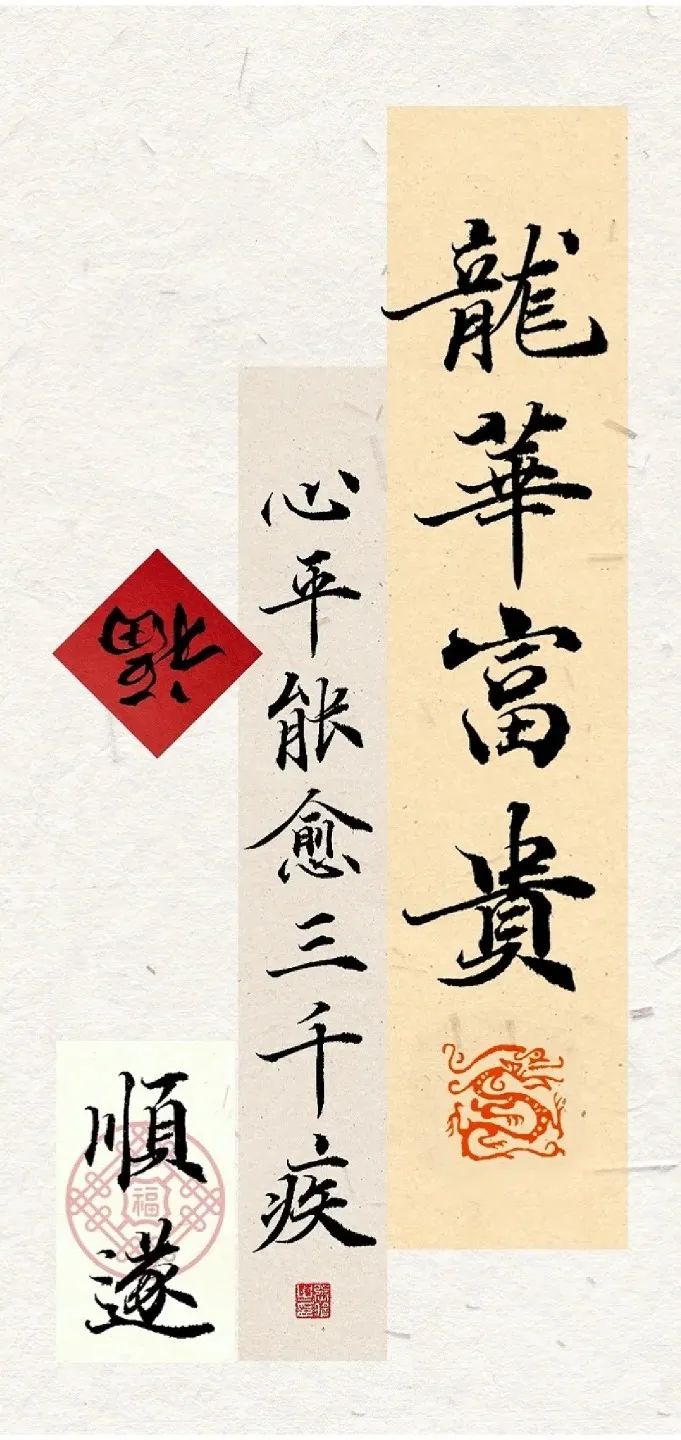 龍華富貴
心平能愈三千疾
福
順遂
福